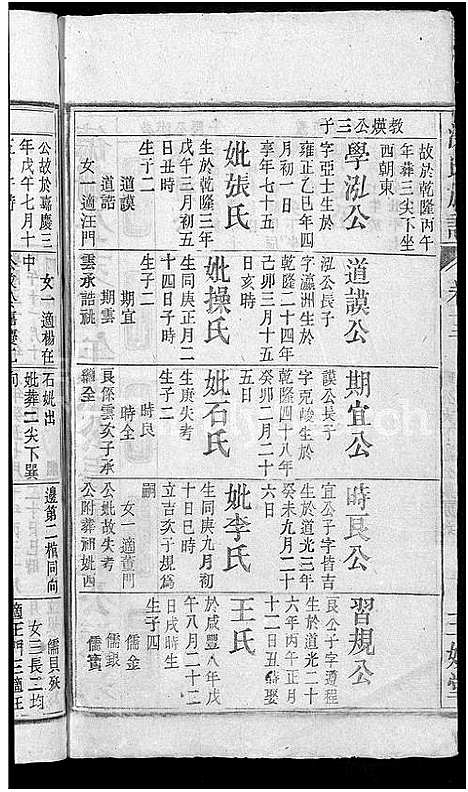 故於乾隆丙午
年葬三尖下坐
西朝東
教煐公三子
學泓公
字亞士生於
雍正乙巳年四
月初一日
享年七十五
妣張氏
生於乾隆三年
戊午三月初五
生子二
道謨
道誥
女一適汪門
道謨公
泓公長子
字瀛洲生於
乾隆二十四年
己卯三月十五
日亥時
妣操氏
生同庚正月二
十四日子時
生子二
期宜
期雲
雲承誥祧
期宜公
謨公長子
字克峻生於
乾隆四十八年
癸卯二月二十
五日
妣石氏
生庚失考
生子二
時艮
時全
艮係雲次子承
繼全
時艮公
宜公子字皆吉
生於道光三年
癸未九月二十
六日
妣李氏
生同庚九月初
十日巳時
立吉亥子規爲
嗣
女一適董門
公妣故失考
公附葬祖妣西
習規公
艮公子字遵程
生於道光二十
六年丙午正月
十一日丑時娶
王氏
於咸豐八年戊
午八月二十二
日戌時生
生子四
儒金
儒銀
儒簧
公故於嘉慶三
年戊午七月十
女一適楊在
中
石妣出
妣葬二尖下巽
向
邊第二棺同向
儒貝殀
女三長二均
適汪門三適汪
三姓堂